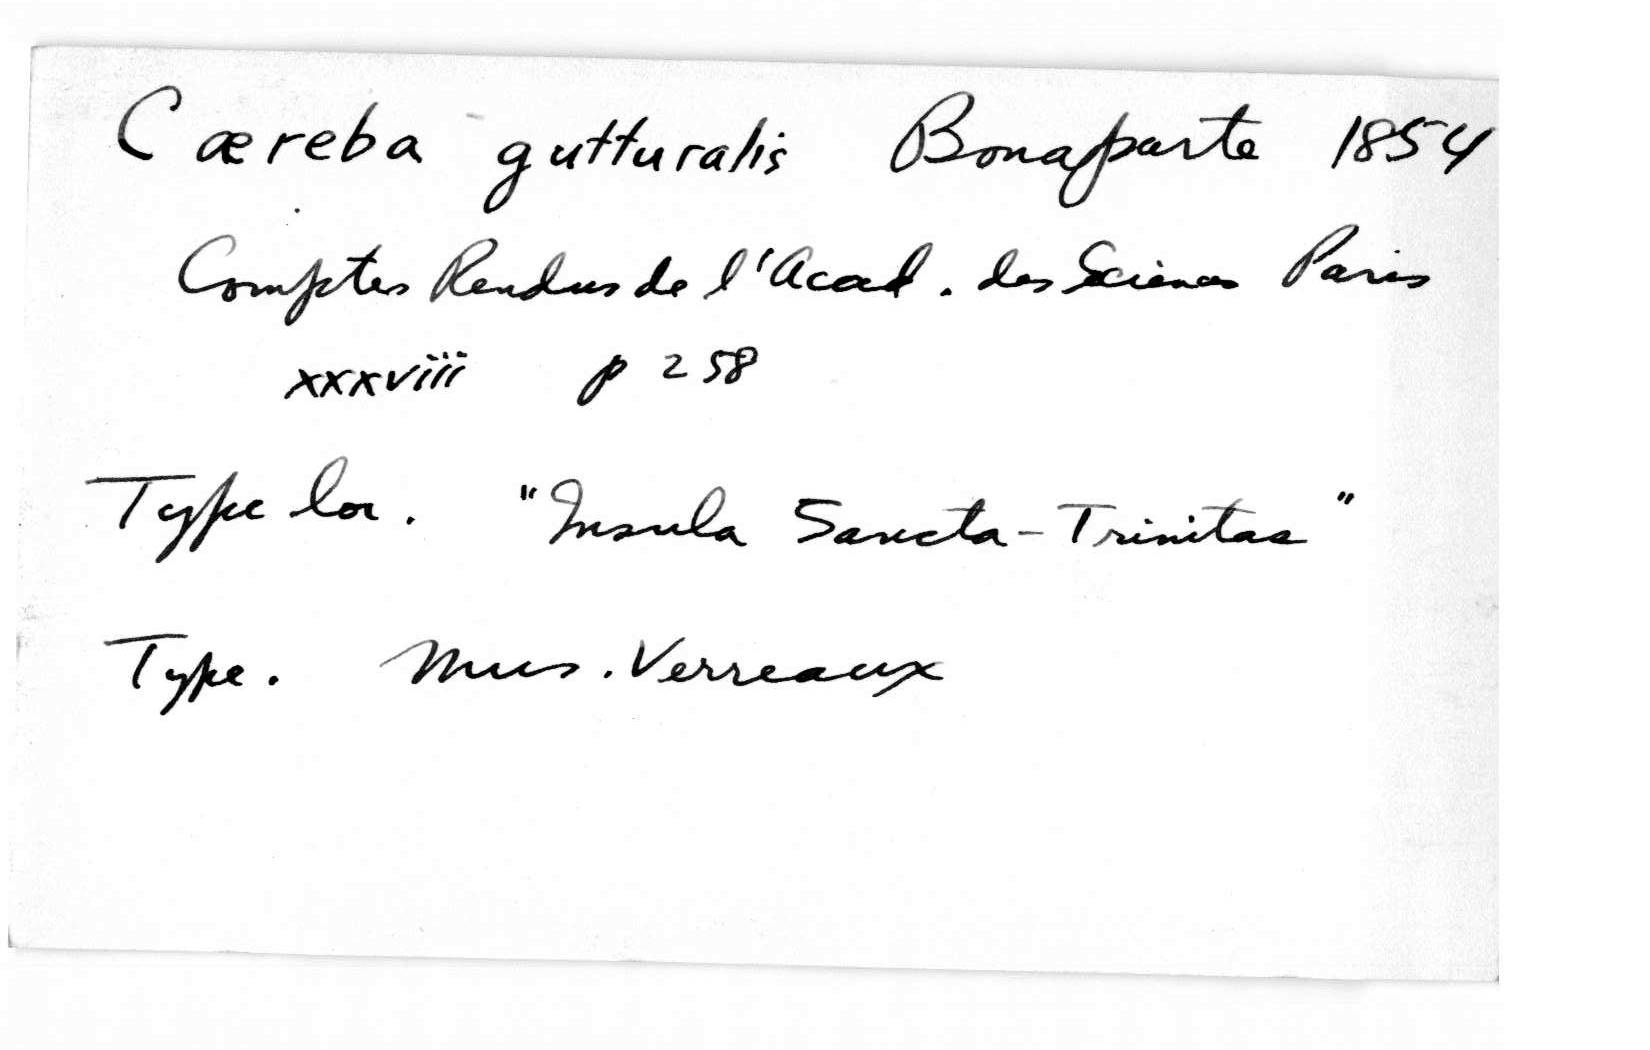 Cæreba gutturalis Bonaparte 1854
Comptes Rendus de l'Acad. des Sciences Paris
xxxviii p 258
Type loc. "Insula Sancta-Trinitas"
Type. Mus. Verreaux